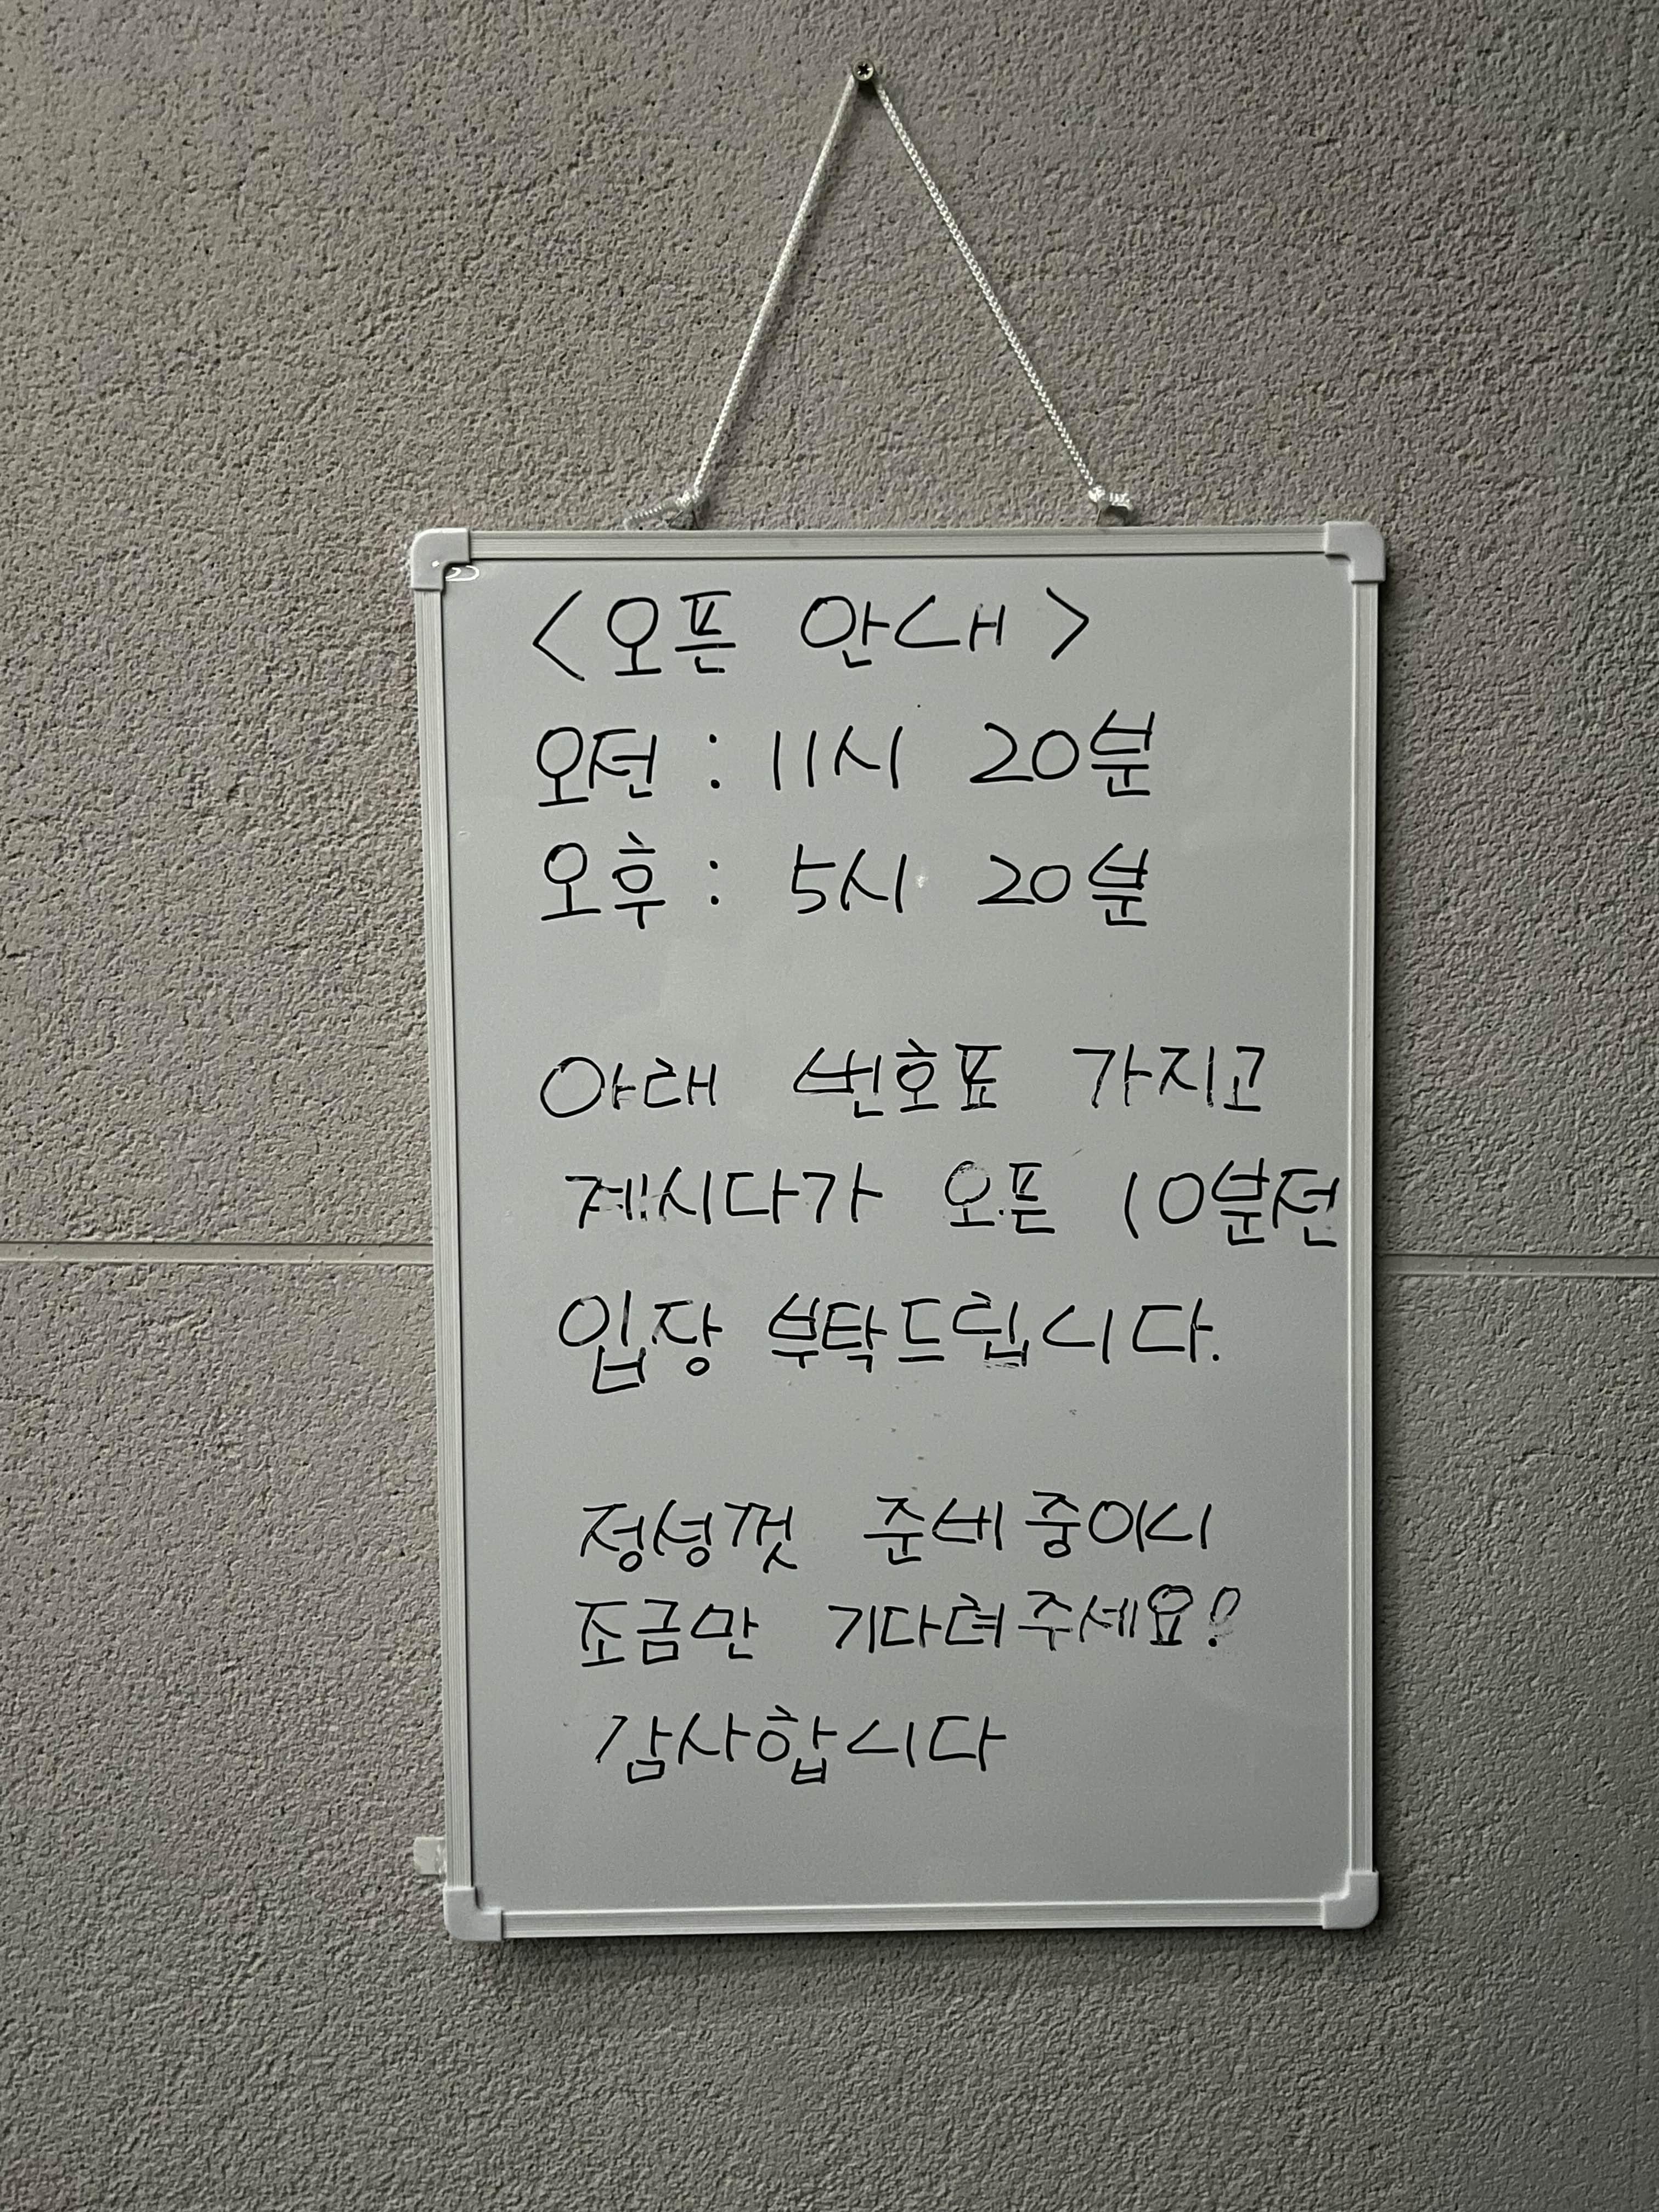 <오픈 안내>
오전 : 11시 20분
오후 : 5시 20분
아래 번호표 가지고
계시다가 오픈 10분전
입장 부탁드립니다.
정성껏 준비중이니
조금만 기다려주세요!
감사합니다